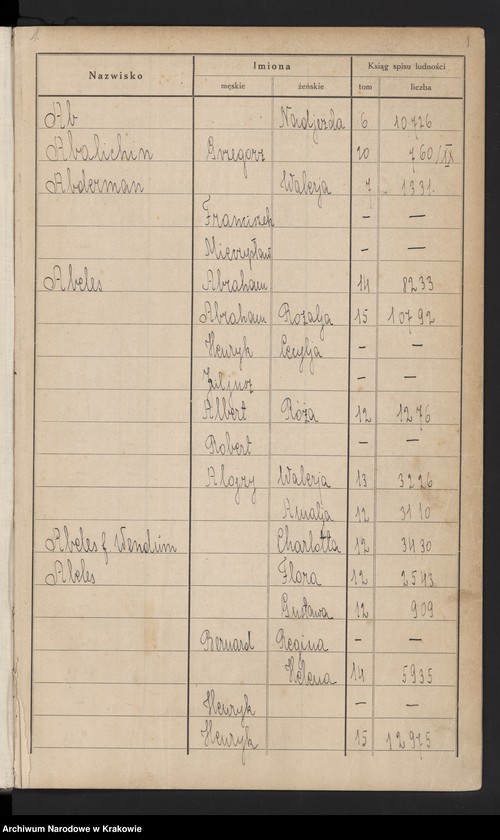 1
Nazwisko Imiona Ksiąg spisu ludności
męskie żeńskie tom liczba
Ab Nadjezda 6 10726
Abalichin Grzegorz 20 760/IX
Abderman Walerja 7 1331
Franciszek - —
Mieczysław - —
Abeles Abraham 14 8233
Abraham Rozalja 15 10792
Henryk Cecylja - —
Juljusz - —
Albert Róża 12 1276
Robert - —
Alojzy Waleria 13 3226
Amalja 12 3110
Abeles f. Wendúm Charlotta 12 3430
Abeles Flora 12 2543
Gustawa 12 909
Bernard Regina - —
Helena 14 5935
Henryk - —
Henryk 15 12975
Archiwum Narodowe w Krakowie